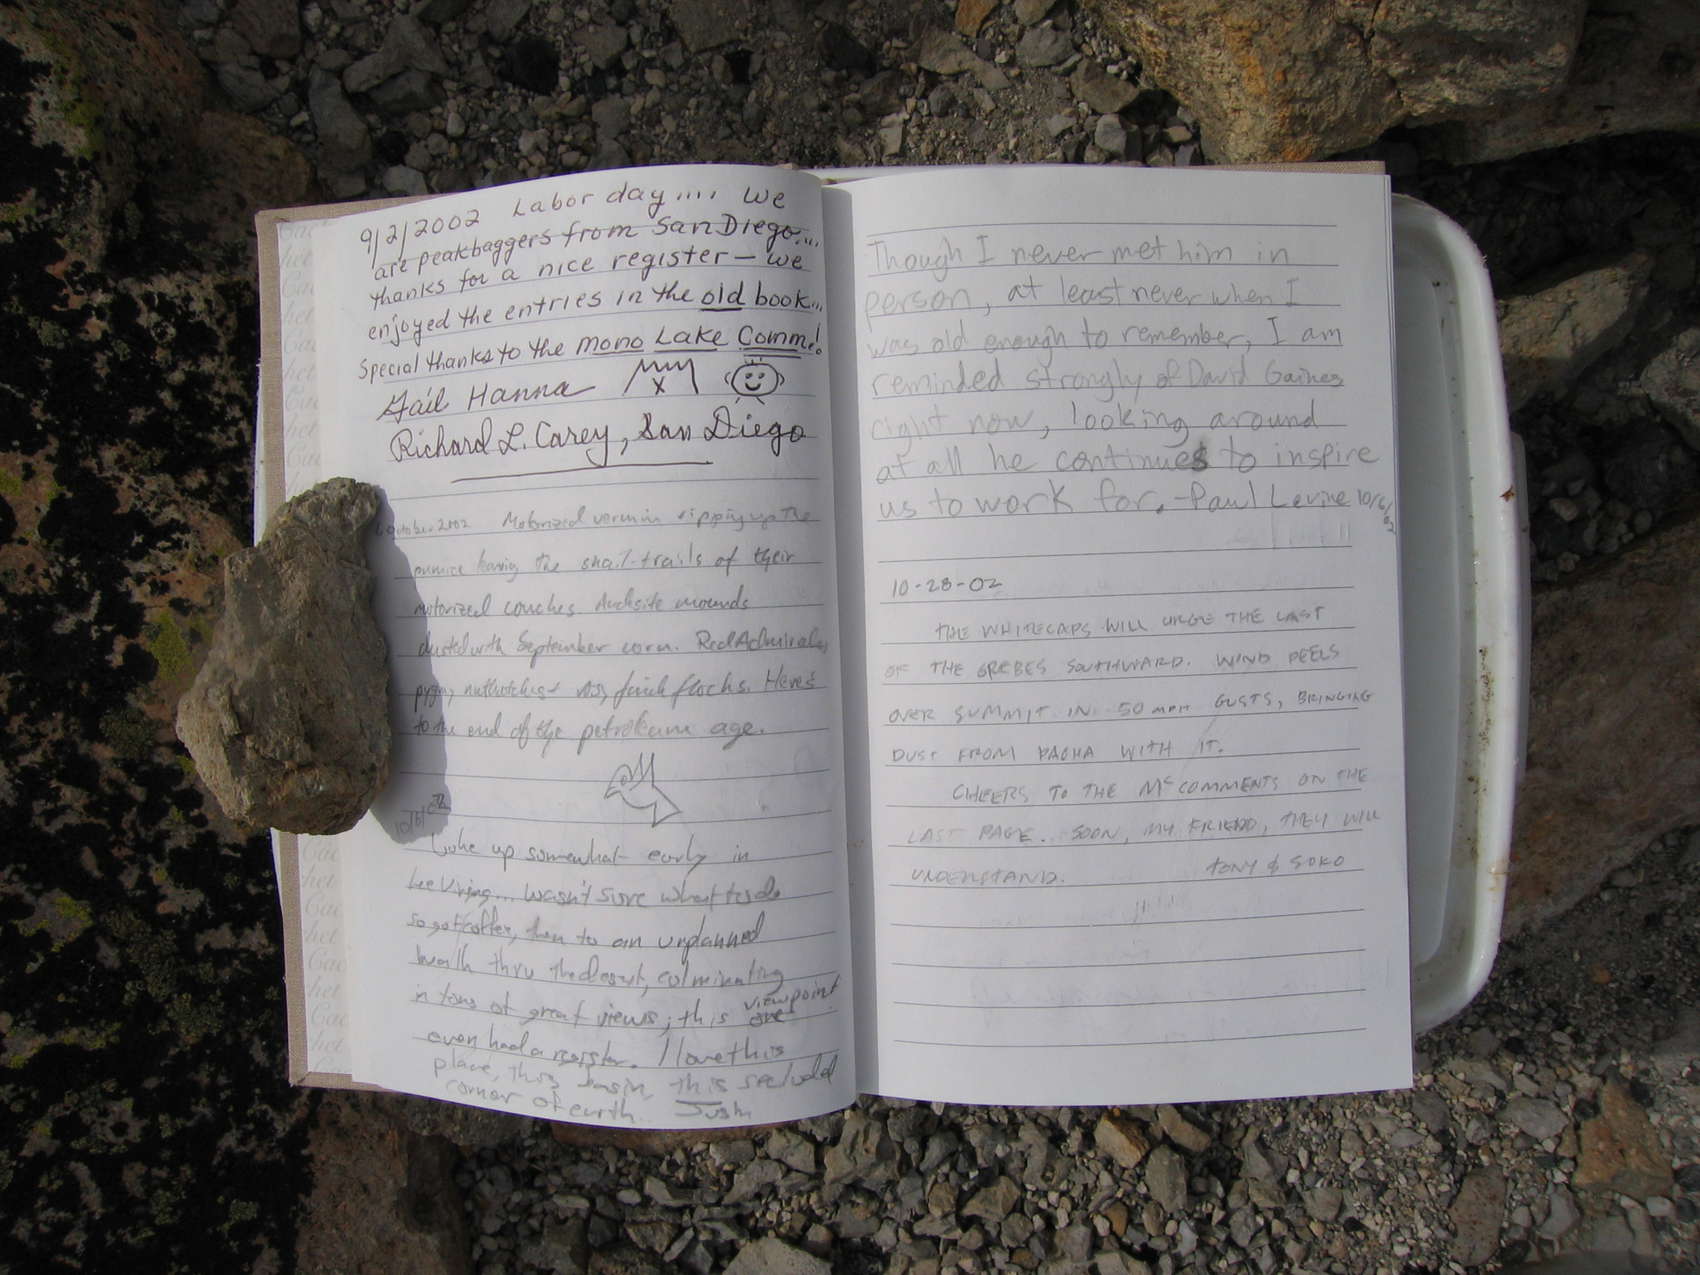 9/2/2002 Labor day.... We
are peakbaggers from San Diego....
thanks for a nice register — we
enjoyed the entries in the old book...
Special thanks to the mono Lake Comm.!
Gail Hanna
Richard L. Carey, San Diego
October 2002 Motorized vermin ripping up the
pumice leaving the snail-trails of their
motorized couches. Andesite mounds
dusted with September corn. Red Admirals,
pygmy nuthatches finch flocks. Here's
to the end of the petroleum age.
10/6/02
Woke up somewhat early in
Lee Vining... wasn't sure what to do
so got coffee, then to an unplanned
walk thru the desert, culminating
in tons of great views; this viewpoint
even had a register. I love this
place, this basin, this secluded
corner of earth. Justin
Though I never met him in
person, at least never when I
was old enough to remember, I am
reminded strongly of David Gaines
right now, looking around
at all he continues to inspire
us to work for. -Paul Levine 10/6/02
10-28-02
THE WHITECAPS WILL URGE THE LAST
OF THE GREBES SOUTHWARD. WIND PEELS
OVER SUMMIT IN 50 MPH GUSTS, BRINGING
DUST FROM PAOHA WITH IT.
CHEERS TO THE McCOMMENTS ON THE
LAST PAGE... SOON, MY FRIEND, THEY WILL
UNDERSTAND. TONY & SOKO